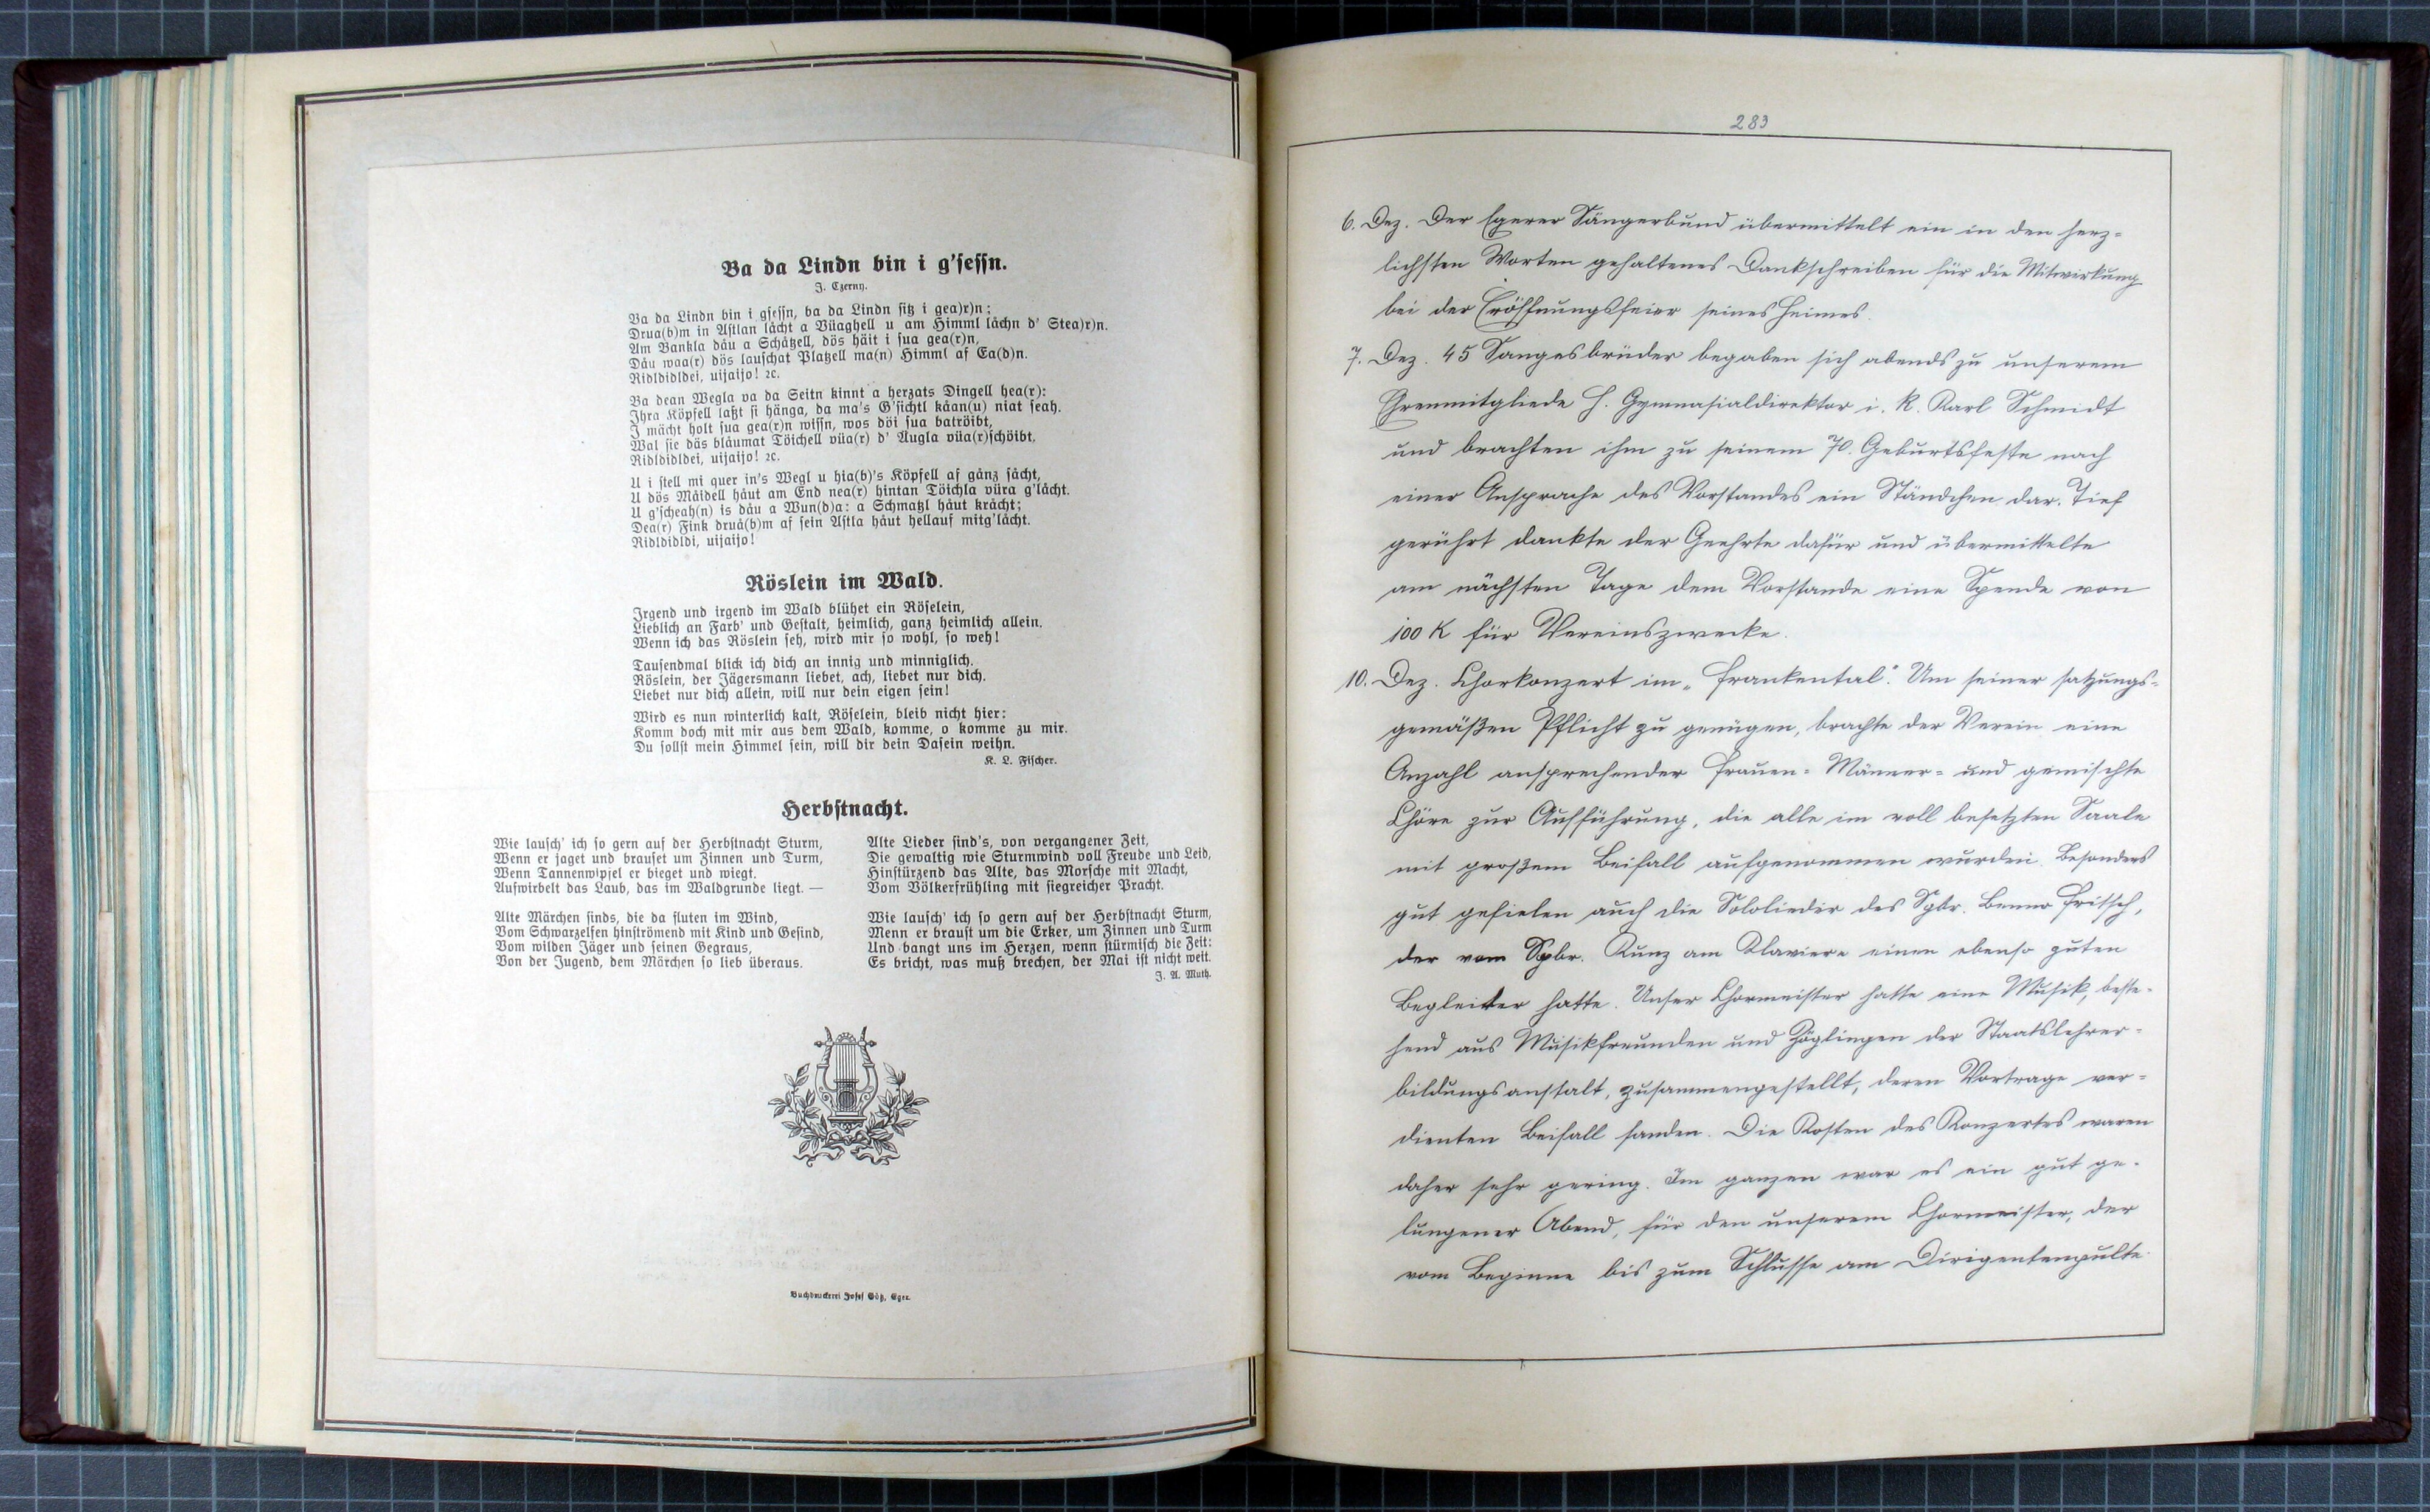 Ba da Lindn bin i g'sessn.
J. Czerny.
Ba da Lindn bin i gsessn, ba da Lindn sitz i gea)r)n;
Drua(b)m in Astlan låcht a Vüaghell u am Himml låchn d' Stea)r)n.
Am Bankla dåu a Schåtzell, dös häit i sua gea(r)n,
Dåu waa(r) dös lauschat Platzell ma(n) Himml af Ea(d)n.
Ridldidldei, uijaijo! ꝛc.
Ba dean Wegla va da Seitn kinnt a herzats Dingell hea(r):
Ihra Köpfell laßt si hänga, da ma's G'sichtl kåan(u) niat seah.
I mächt holt sua gea(r)n wissn, wos döi sua batröibt,
Wal sie däs blåumat Töichell vüa(r) d' Augla vüa(r)schöibt.
Ridldidldei, uijaijo! ꝛc.
U i stell mi quer in's Wegl u hia(b)'s Köpfell af gånz såcht,
U dös Måidell håut am End nea(r) hintan Töichla vüra g'låcht.
U g'scheah(n) is dåu a Wun(d)a: a Schmatzl håut kråcht;
Dea(r) Fink druå(b)m af sein Astla håut hellauf mitg'låcht.
Ridldidldi, uijaijo!
Röslein im Wald.
Irgend und irgend im Wald blühet ein Röselein,
Lieblich an Farb' und Gestalt, heimlich, ganz heimlich allein.
Wenn ich das Röslein seh, wird mir so wohl, so weh!
Tausendmal blick ich dich an innig und minniglich.
Röslein, der Jägersmann liebet, ach, liebet nur dich.
Liebet nur dich allein, will nur dein eigen sein!
Wird es nun winterlich kalt, Röselein, bleib nicht hier:
Komm doch mit mir aus dem Wald, komme, o komme zu mir.
Du sollst mein Himmel sein, will dir dein Dasein weihn.
K. L. Fischer.
Herbstnacht.
Wie lausch' ich so gern auf der Herbstnacht Sturm,
Wenn er jaget und brauset um Zinnen und Turm,
Wenn Tannenwipfel er bieget und wiegt.
Aufwirbelt das Laub, das im Waldgrunde liegt. —
Alte Märchen sinds, die da fluten im Wind,
Vom Schwarzelfen hinströmend mit Kind und Gesind,
Vom wilden Jäger und seinen Gegraus,
Von der Jugend, dem Märchen so lieb überaus.
Alte Lieder sind's, von vergangener Zeit,
Die gewaltig wie Sturmwind voll Freude und Leid,
Hinstürzend das Alte, das Morsche mit Macht,
Vom Völkerfrühling mit siegreicher Pracht.
Wie lausch' ich so gern auf der Herbstnacht Sturm,
Menn er braust um die Erker, um Zinnen und Turm
Und bangt uns im Herzen, wenn stürmisch die Zeit:
Es bricht, was muß brechen, der Mai ist nicht weit.
J. A. Muth.
Buchdruckerei Josef Götz, Eger.
283
6. Dez. Der Egerer Sängerbund übermittelt ein in den herz-
lichsten Worten gehaltenes Dankschreiben für die Mitwirkung
bei der Eröffnungsfeier seines Heimes.
7. Dez. 45 Sangesbrüder begaben sich abends zu unserem
Ehrenmitgliede H. Gymnasialdirektor i. R. Karl Schmidt
und brachten ihm zu seinem 70. Geburtsfeste nach
einer Ansprache des Vorstandes ein Ständchen dar. Tief
gerührt dankte der Geehrte dafür und übermittelte
am nächsten Tage dem Vorstande eine Spende von
100 K für Vereinszwecke.
10. Dez. Chorkonzert im „Frankental". Um seiner satzungs-
gemäßen Pflicht zu genügen, brachte der Verein eine
Anzahl ansprechender Frauen- Männer- und gemischte
Chöre zur Aufführung, die alle im voll besetzten Saale
mit großem Beifall aufgenommen wurden. Besonders
gut gefielen auch die Sololieder des Sgbr. Benno Fritsch,
der vom Sgbr. Kunz am Klaviere einen ebenso guten
Begleiter hatte. Unser Chormeister hatte eine Musik, beste-
hend aus Musikfreunden und Zöglingen der Staatslehrer-
bildungsanstalt, zusammengestellt, deren Vortrage ver-
dienten Beifall fanden. Die Kosten des Konzertes waren
daher sehr gering. Im ganzen war es ein gut ge-
lungener Abend, für den unserem Chormeister, der
vom Beginne bis zum Schlusse am Dirigentenpulte